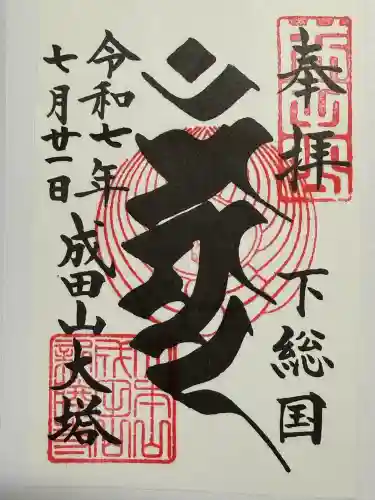 奉拝
下総国
成田山大塔
令和七年
七月廿一日